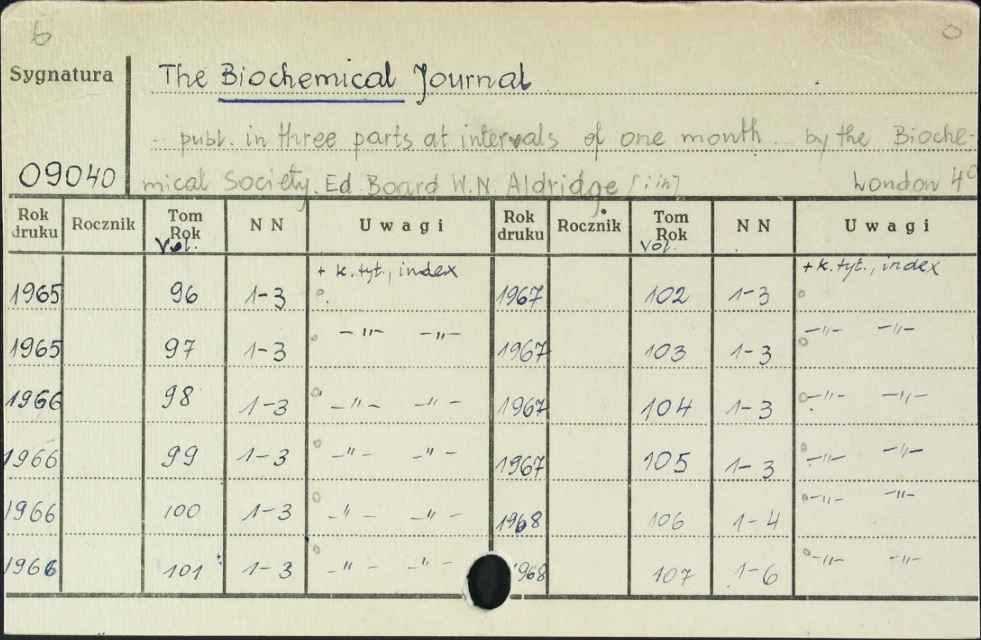 6 0
Sygnatura The Biochemical Journal
.. publ. in three parts at intervals of one month .. by the Bioche-
09040 mical Society. Ed. Board W.N. Aldridge [i in] London 4°
Rok druku Rocznik Tom Rok Vol. N N Uwagi Rok druku Rocznik Tom Rok Vol. N N Uwagi
+ k. tyt., index + k. tyt., index
1965 96 1-3 1967 102 1-3
1965 97 1-3 -"- -"- 1967 103 1-3 -"- -"-
1966 98 1-3 -"- -"- 1967 104 1-3 -"- -"-
1966 99 1-3 -"- -"- 1967 105 1-3 -"- -"-
1966 100 1-3 -"- -"- 1968 106 1-4 -"- -"-
1966 101 1-3 -"- -"- 1968 107 1-6 -"- -"-